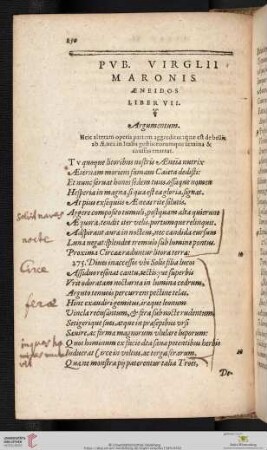 PVB. VIRGLII
MARONIS
ÆNEIDOS
LIBER VII.
Argumentum.
Tu quoque litoribus nostris Æneia nutrix
Æternam moriens famam Caieta dedisti:
Et nunc seruat honos sedem tuus, ossaque nomen
Hesperia in magna, si qua est ea gloria, signat.
At pius exequiis Æneas rite solutis,
Aggere composito tumuli, postquam alta quierunt
Æquora, tendit iter velis, portumque relinquit.
Adspirant auræ in noctem, nec candida cursum
Luna negat: splendet tremulo sub lumine pontus.
Proxima Circææ raduntur litora terræ:
Diues inaccessos vbi Solis filia lucos
Assiduo resonat cantu, tectisque superbis
Vrit odoratam nocturna in lumina cedrum,
Arguto tenues percurrens pectine telas.
Hinc exaudiri gemitus, iræque leonum
Vincla recusantum, & sera sub nocte rudentum,
Setigerique sues, atque in præsepibus vrsi
Sæuire, ac formæ magnorum vlulare luporum:
Quos hominum ex facie dea sæua potentibus herbis
Induerat Circe in vultus, ac terga ferarum.
Quæ ne monstra pij paterentur talia Troës,
De-
nocte
Circe
feræ